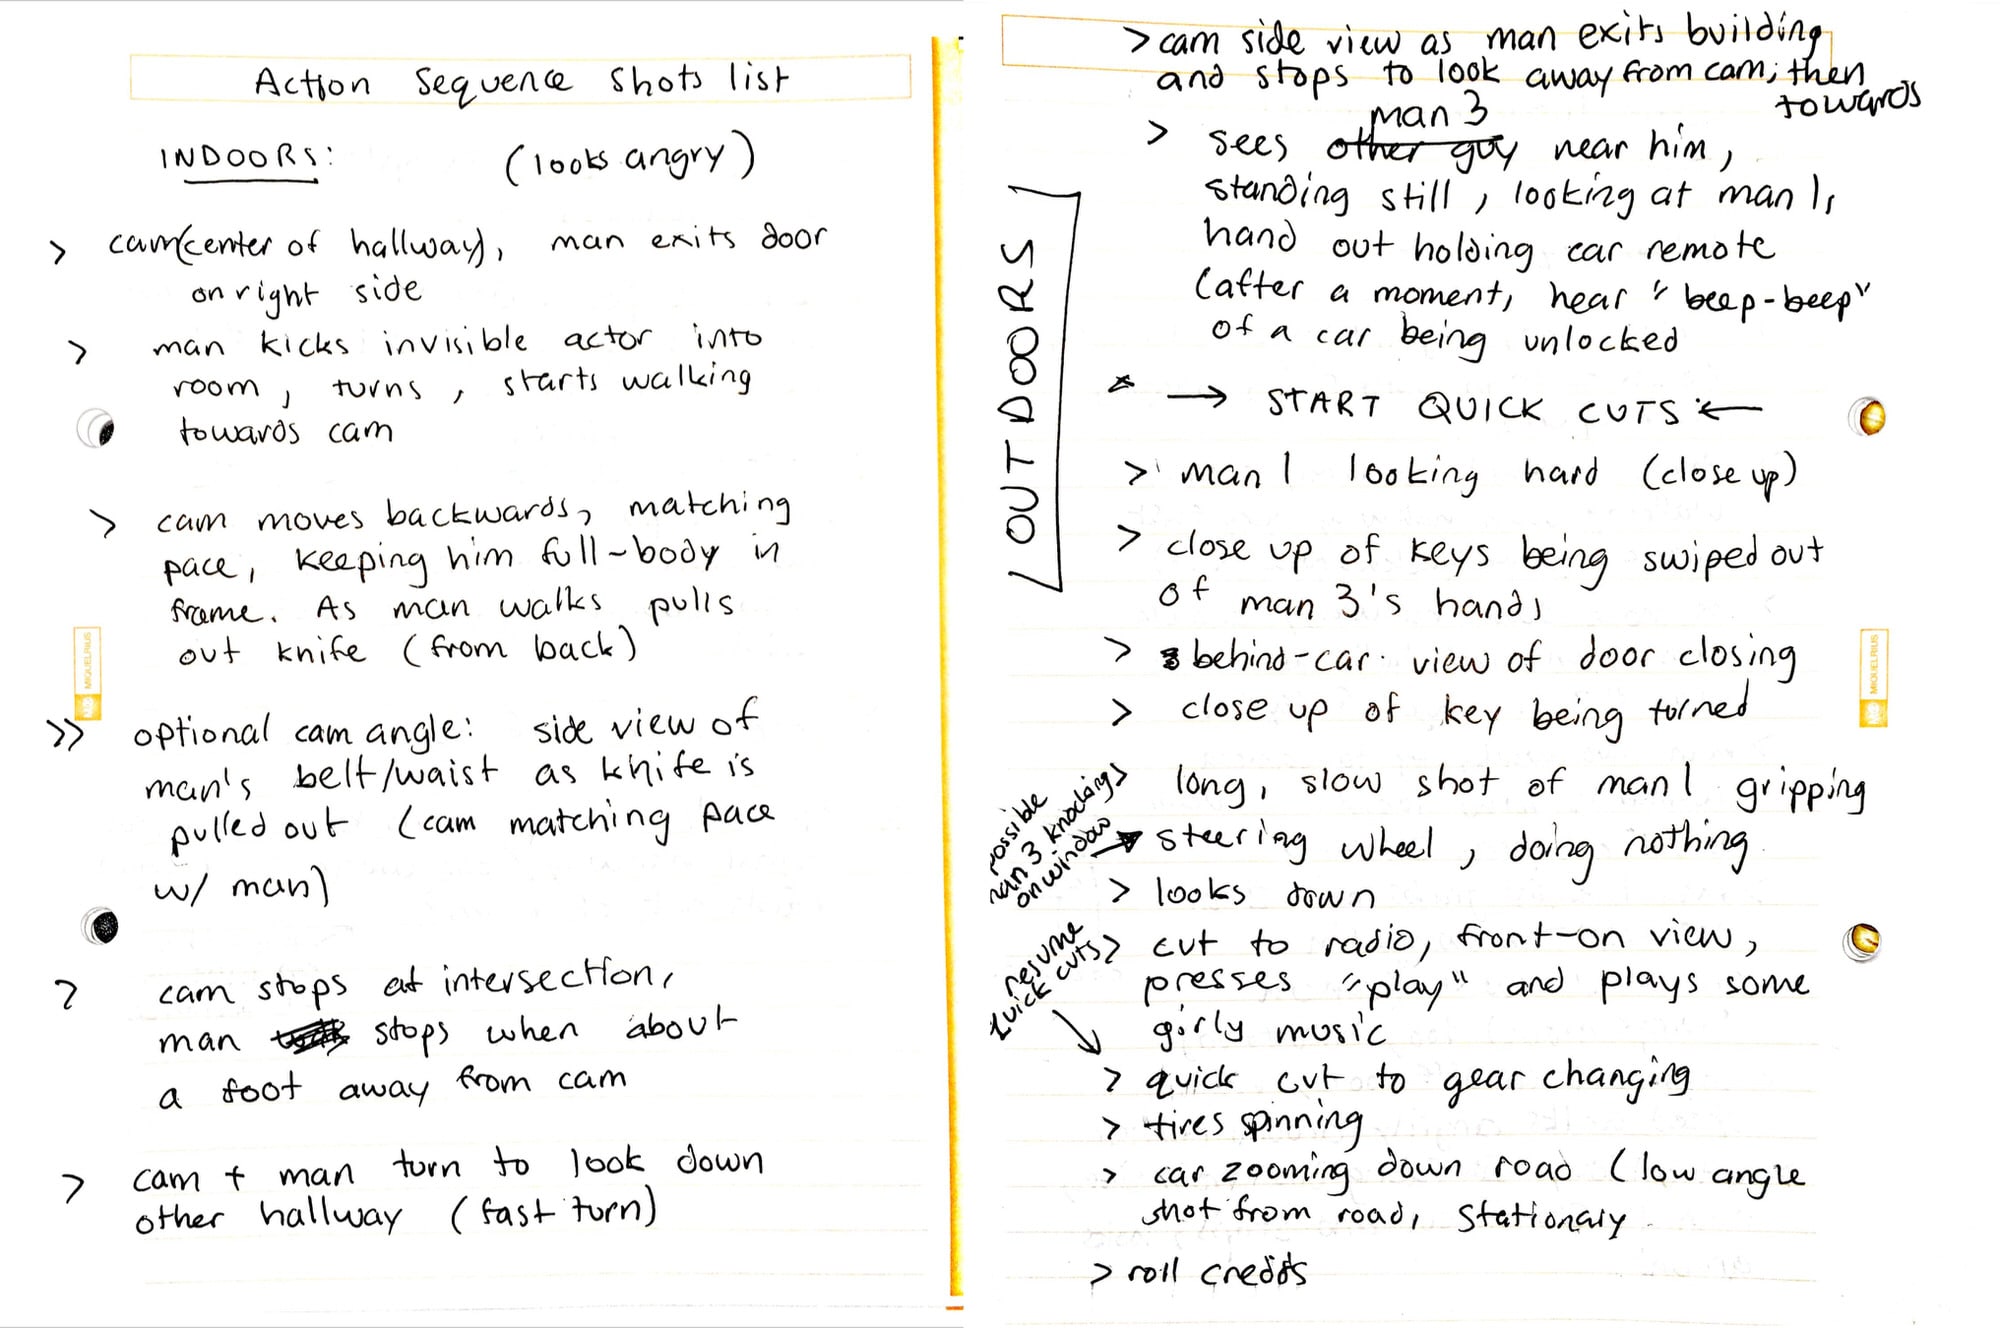 Action Sequence Shots list
INDOORS: (looks angry)
> cam(center of hallway), man exits door
on right side
> man kicks invisible actor into
room, turns, starts walking
towards cam
> cam moves backwards, matching
pace, keeping him full-body in
frame. As man walks pulls
out knife (from back)
>> optional cam angle: side view of
man's belt/waist as knife is
pulled out (cam matching pace
w/ man)
> cam stops at intersection,
man stops when about
a foot away from cam
> cam + man turn to look down
other hallway (fast turn)
MIQUELRIUS
> cam side view as man exits building
and stops to look away from cam; then
towards
man 3
> sees other guy near him,
standing still, looking at man 1,
hand out holding car remote
(after a moment, hear "beep-beep"
of a car being unlocked
OUTDOORS
* → START QUICK CUTS ←
> man 1 looking hard (close up)
> close up of keys being swiped out
of man 3's hand,
> behind-car view of door closing
> close up of key being turned
> long, slow shot of man 1 gripping
steering wheel, doing nothing
possible
man 3 knocking
on window
> looks down
> cut to radio, front-on view,
presses "play" and plays some
girly music
resume
quick cuts
> quick cut to gear changing
> tires spinning
> car zooming down road (low angle
shot from road, stationary
> roll credits
MIQUELRIUS